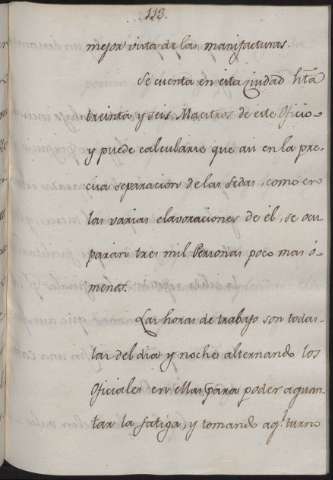 113.
mejor vista de las manifacturas.
Se cuenta en esta ciudad hta
treinta y seis Maestros de este Oficio
y puede calcularse que asi en la pre-
cisa separacion de las sedas, como en
las varias elavoraciones de él, se ocu-
paran tres mil Personas poco mas ó
menos.
Las horas de trabajo son todas
las del dia y noche alternando los
Oficiales en ellas para poder aguan-
tar la fatiga, y tomando aqel turno